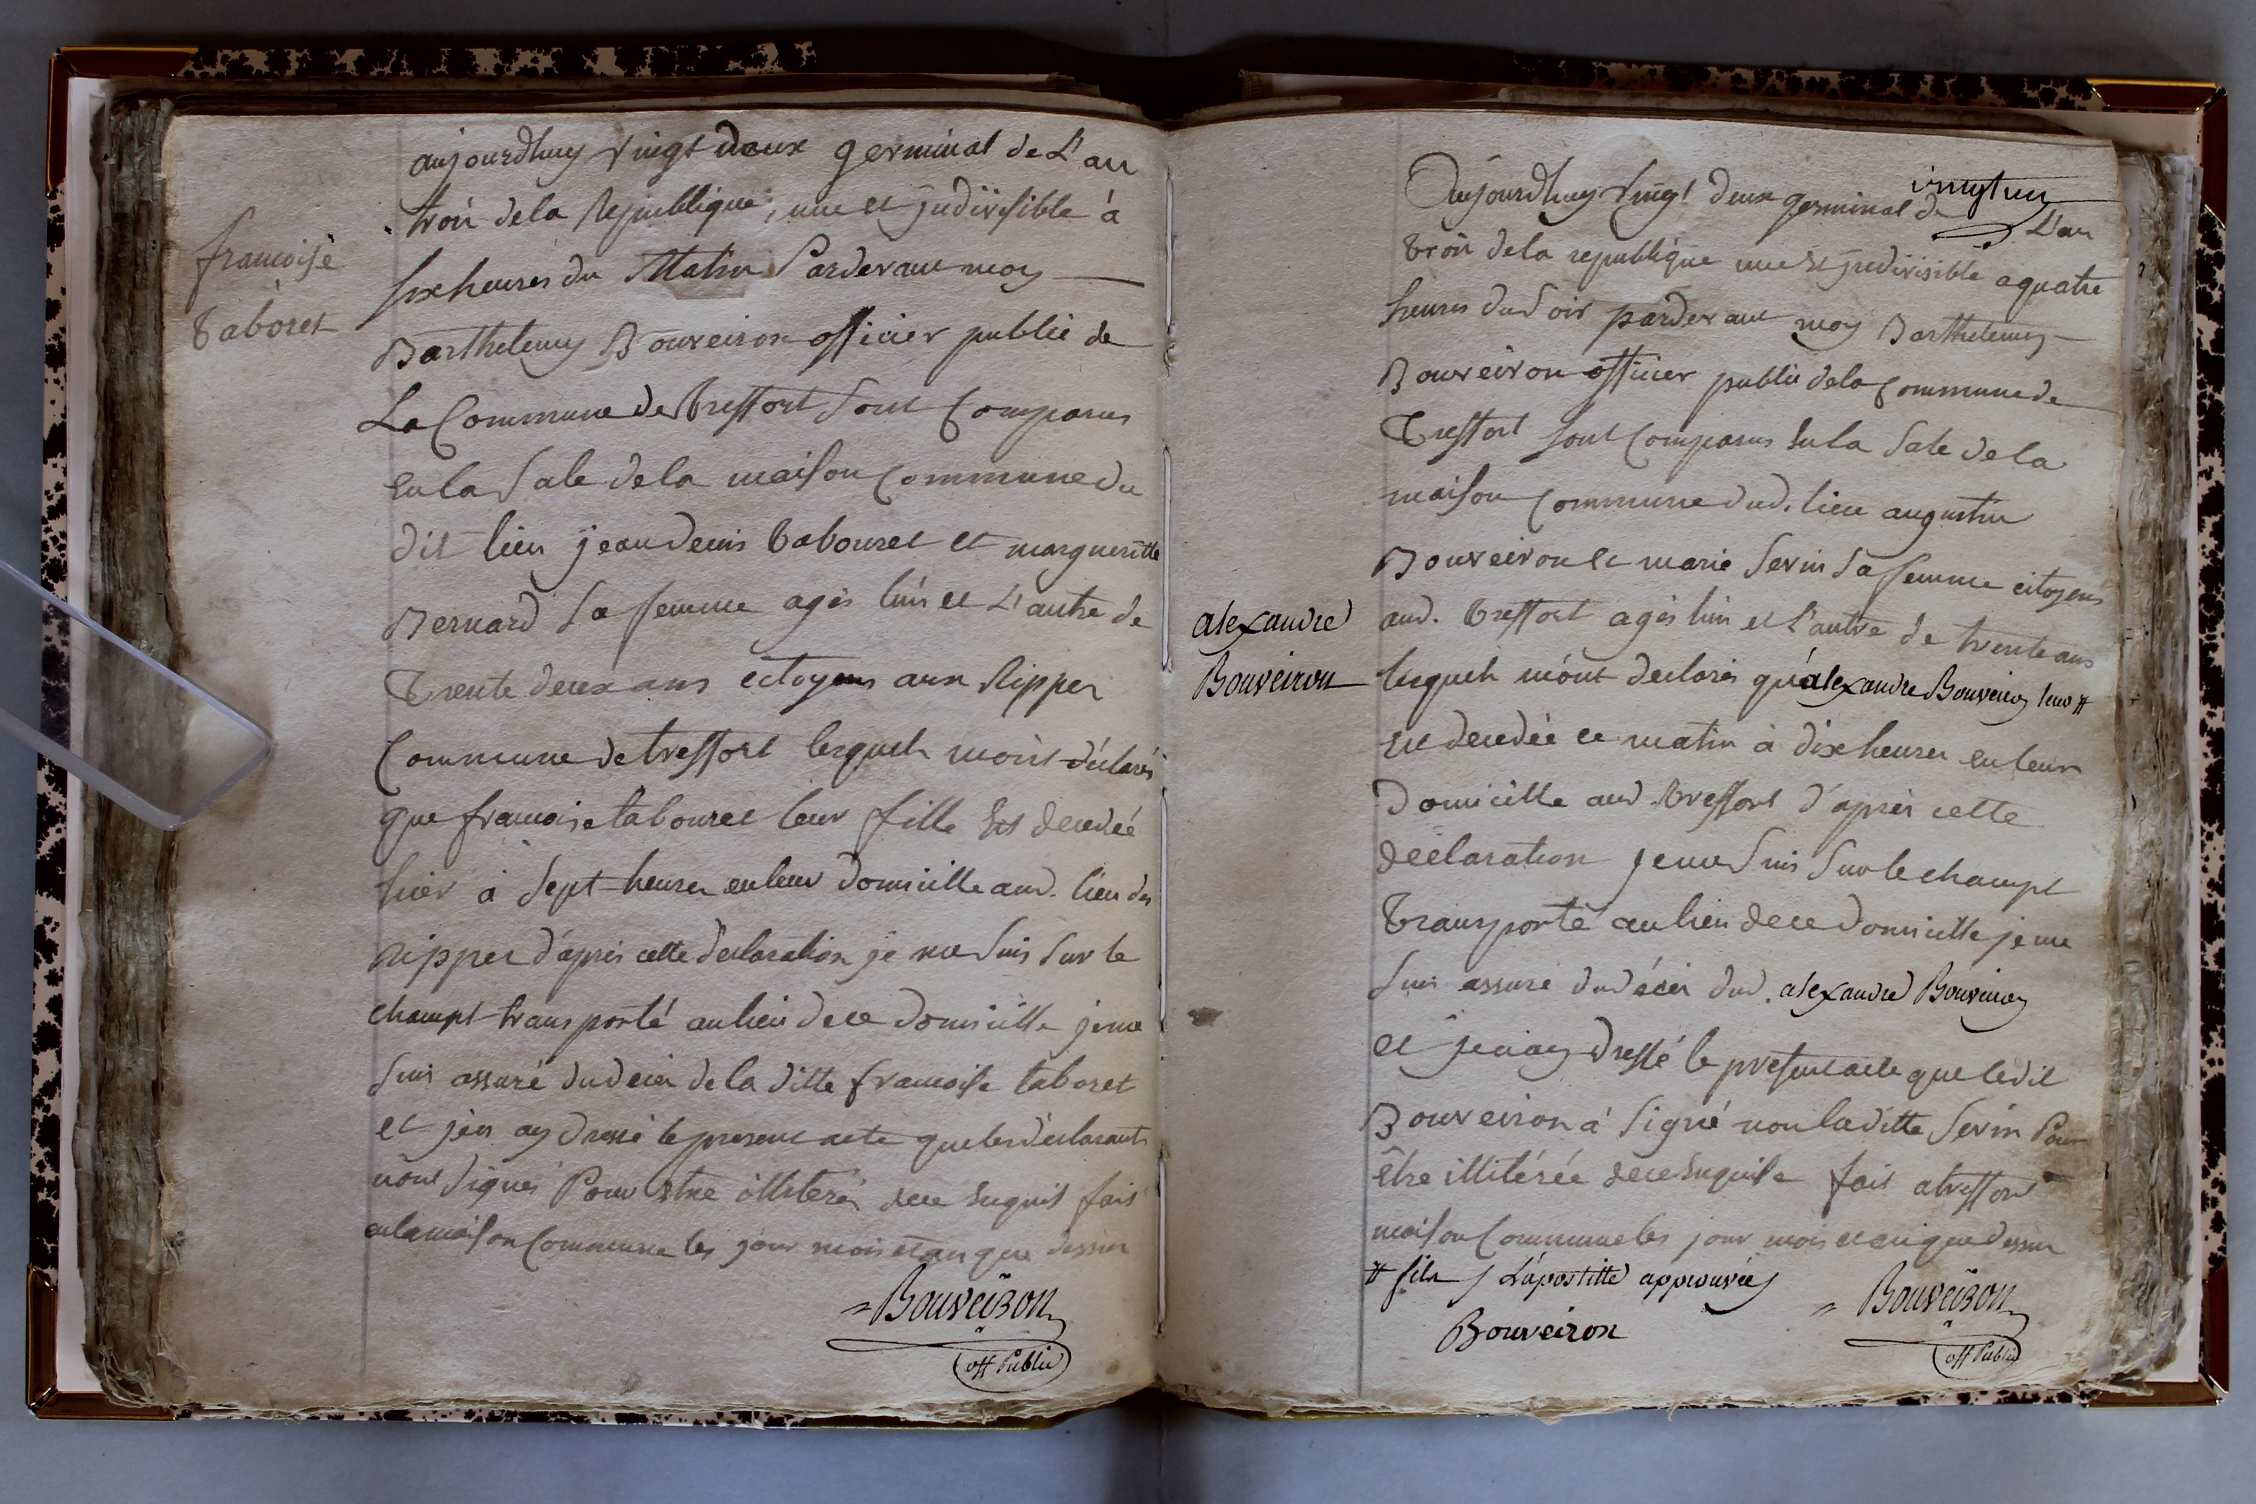 francoise
taboret
aujourdhuy vingt deux germinal de L'an
trois dela Republique, une et jndivisible à
six heures du Matin Pardevant moy
Barthelemy Bouveiron officier public de
La Commune de treffort sont Comparus
en la sale dela maison Commune du
dit lieu jean denis tabouret et margueritte
Bernard sa femme agés lun et L'autre de
trente deux ans citoyens aux Rippes
Commune de treffort lesquels mont déclarés
que francoise tabouret leur fille est decedée
hier à sept heures en leur domicille aud. lieu des
Rippes d'après cette declaration je me suis sur le
champt transporté au lieu de ce domicille je me
suis assuré du decés de la ditte francoise taboret
et j'en ay dressé le present acte que les déclarants
n'ont signés Pour etre illiterés de ce enquis fait
en la maison Commune les jour mois et an que dessus
Bouveiron
off Public
vingt un
Aujourdhuy vingt deux germinal de L'an
trois dela republique une et jndivisible a quatre
heures du soir pardevant moy Barthelemy
Bouveiron officier public dela Commune de
Treffort sont Comparus en la sale dela
maison Commune dud. lieu augustin
Bouveiron et marie sevin sa femme citoyens
aud. treffort agés lun et l'autre de trente ans
alexandre
Bouveiron
lesquels m'ont declarés qu'alexandre Bouveiron leur #
est decedée ce matin à dix heures en leur
Domicille aud. treffort d'après cette
déclaration je me suis sur le champt
transporté au lieu de ce domicille je me
suis assuré du décés dud. alexandre Bouveiron
et j'en ay dressé le present acte que ledit
Bouveiron à signé non laditte sevin Pour
être illitérée de ce enquise fait a treffort
maison Commune les jour mois et an que dessus
# fils / L'apostille approuvée /
Bouveiron
Bouveiron
off Public